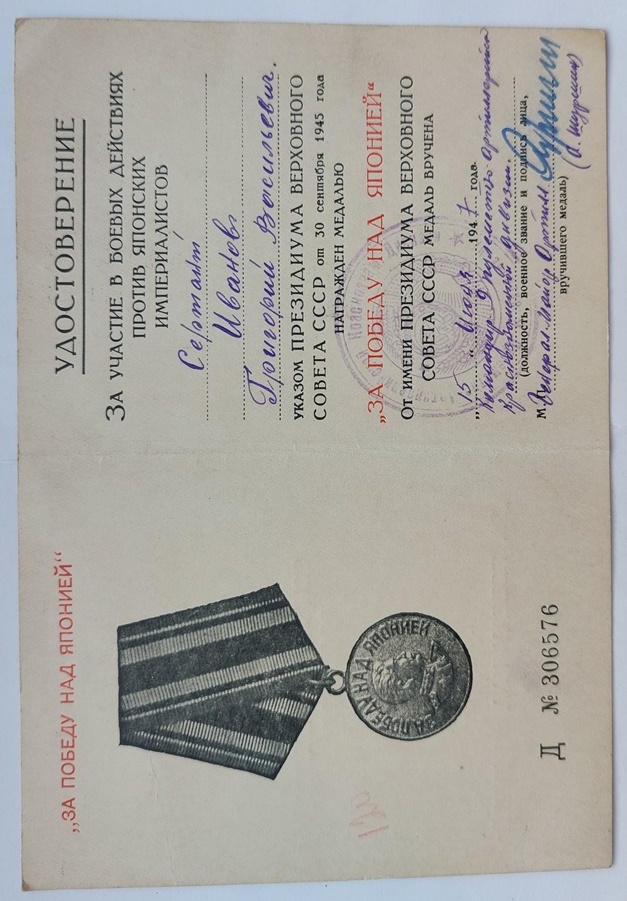 „ЗА ПОБЕДУ НАД ЯПОНИЕЙ“
ЗА ПОБЕДУ НАД ЯПОНИЕЙ
Д № 306576
УДОСТОВЕРЕНИЕ
ЗА УЧАСТИЕ В БОЕВЫХ ДЕЙСТВИЯХ
ПРОТИВ ЯПОНСКИХ
ИМПЕРИАЛИСТОВ
Сержант
Иванов
Григорий Васильевич.
УКАЗОМ ПРЕЗИДИУМА ВЕРХОВНОГО
СОВЕТА СССР от 30 сентября 1945 года
НАГРАЖДЕН МЕДАЛЬЮ
„ЗА ПОБЕДУ НАД ЯПОНИЕЙ“
ОТ ИМЕНИ ПРЕЗИДИУМА ВЕРХОВНОГО
СОВЕТА СССР МЕДАЛЬ ВРУЧЕНА
„15“ 1947 года.
Командир пулеметно артиллерийской
дивизии.
(должность, военное звание и подпись лица,
М. Генерал майор Артил
вручившего медаль)